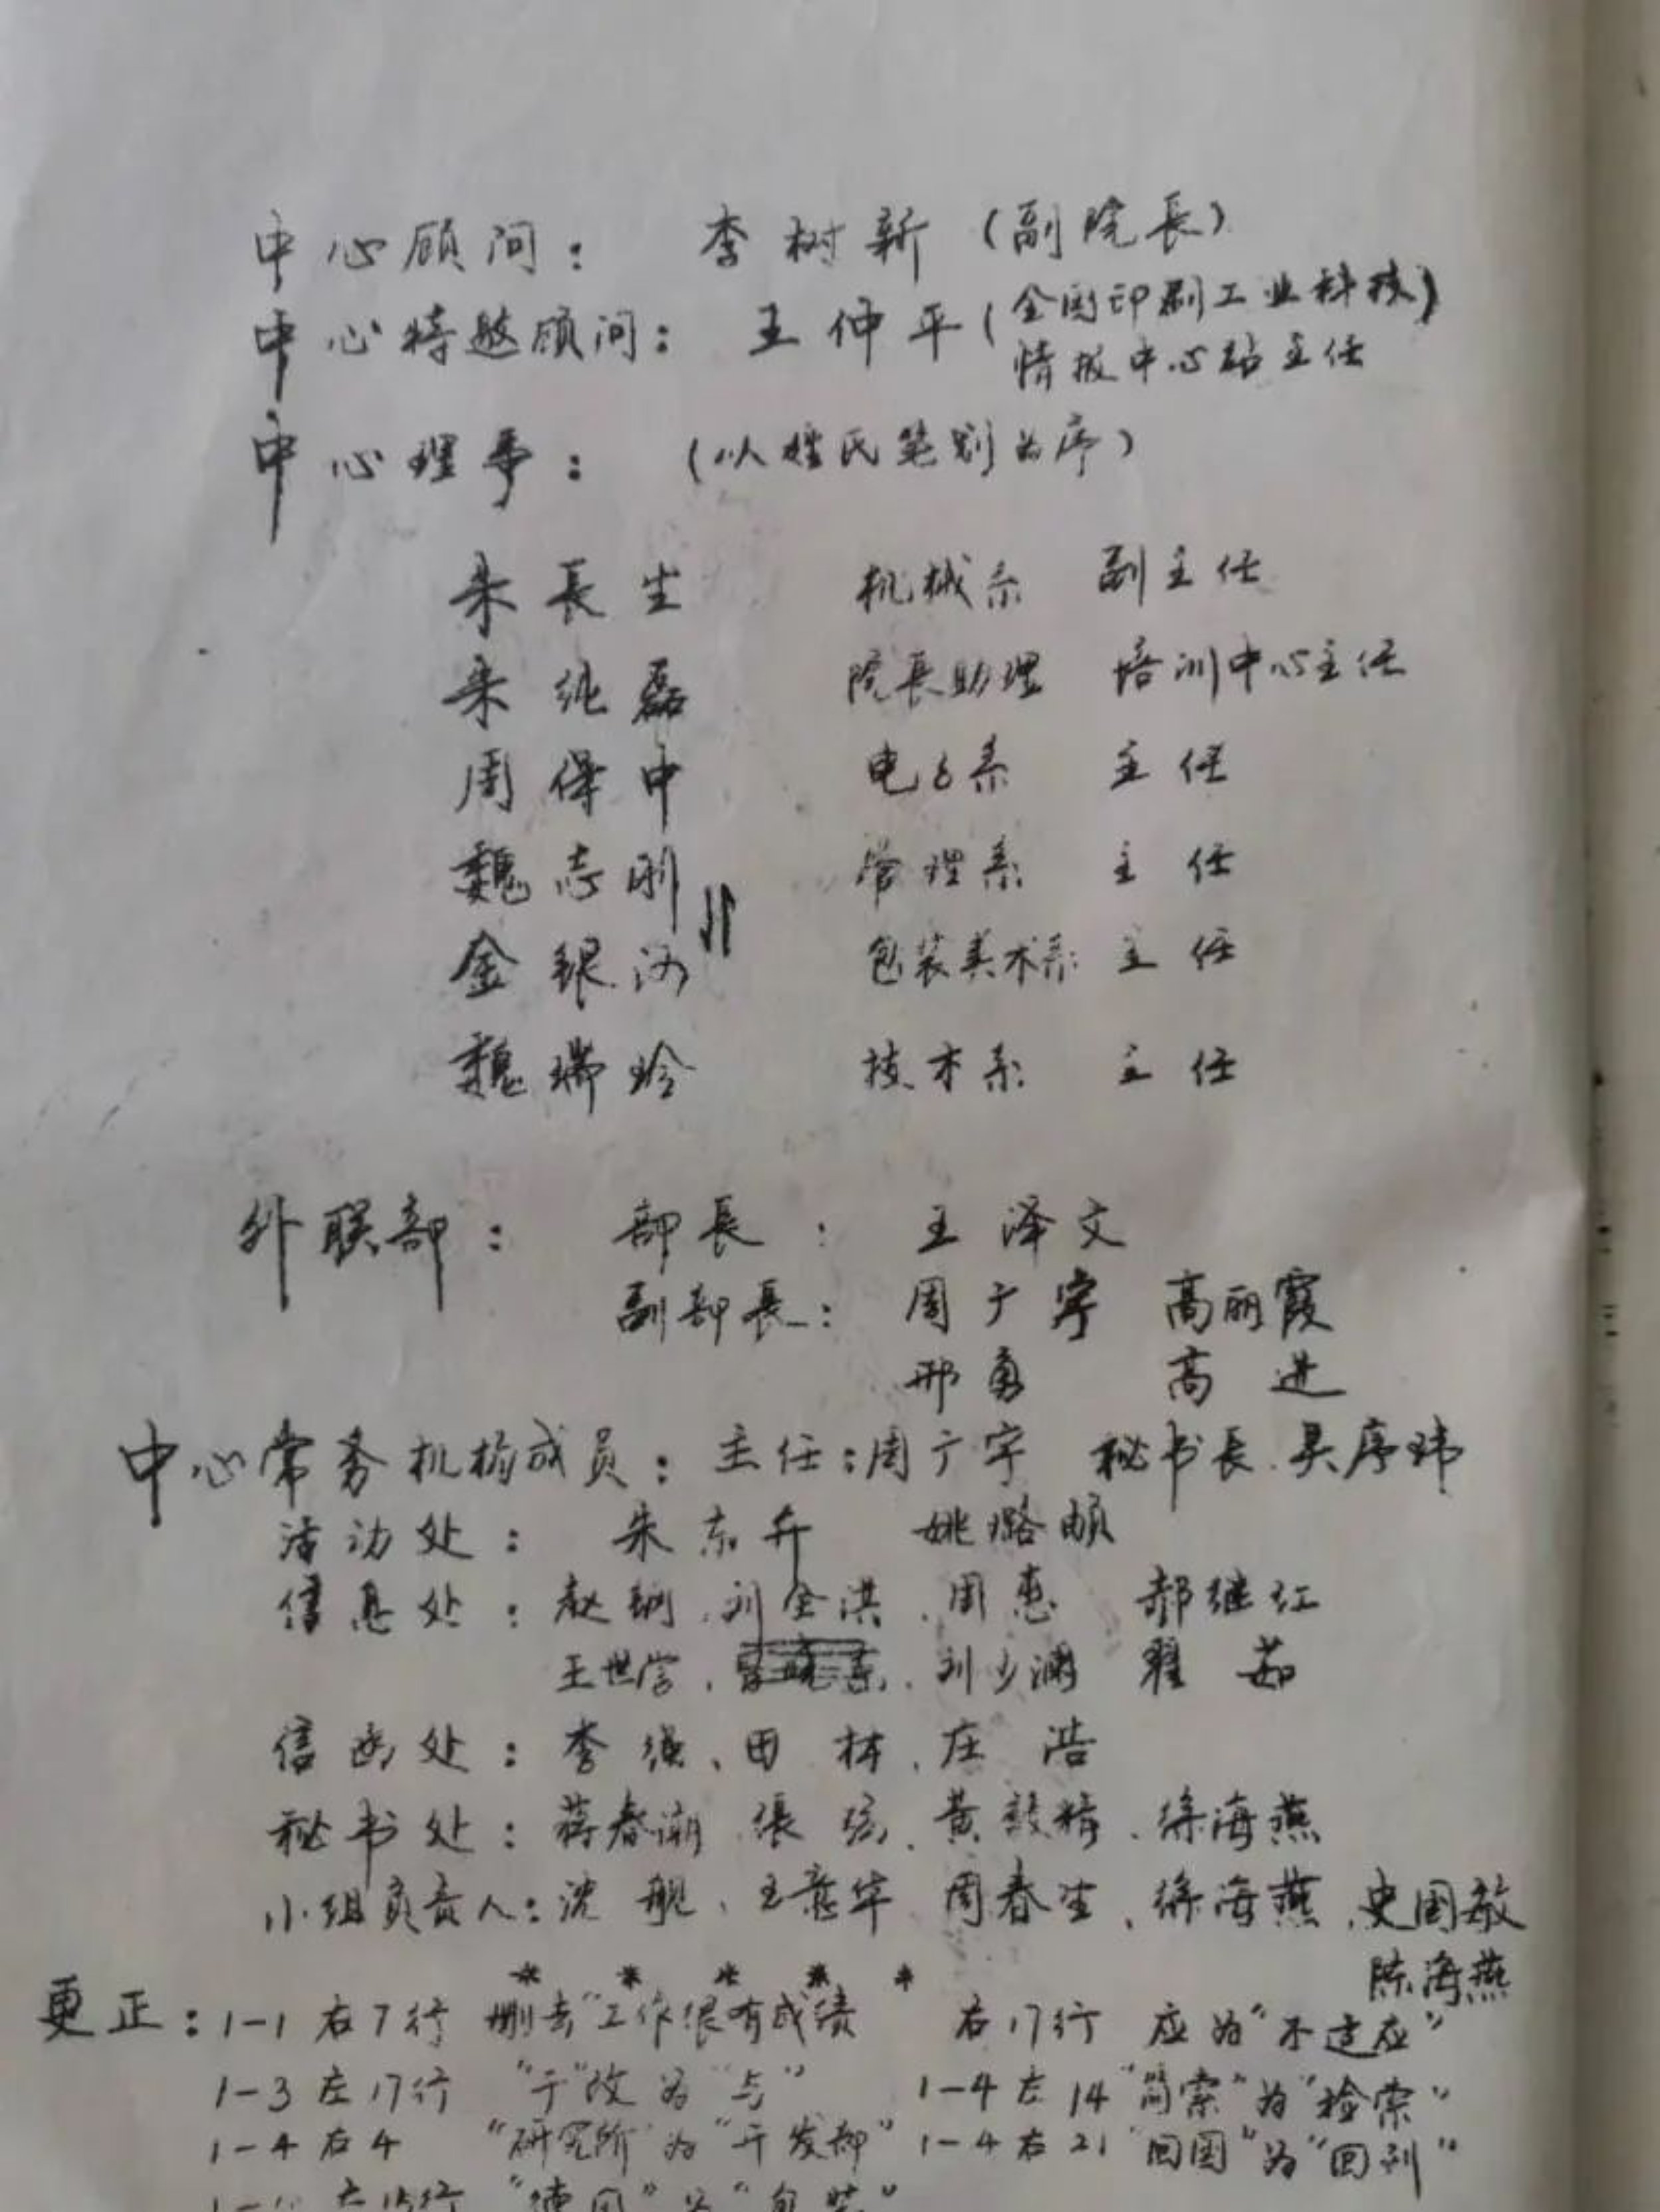 中心顾问： 李树新（副院長）
中心特邀顾问： 王仲平（全国印刷工业科技
情报中心站主任）
中心理事：（以姓氏笔划为序）
朱長生 机械系 副主任
朱纯磊 院長助理 培训中心主任
周保中 电子系 主任
魏志刚 管理系 主任
金银河 包装美术系 主任
魏瑞玲 技术系 主任
外联部： 部長： 王泽文
副部長： 周广宇 高丽霞
邢勇 高进
中心常务机构成员：主任：周广宇 秘书長.吴序玮
活动处： 朱东升 姚璐
信息处：赵钢、刘全洪、周惠 郝继红
王世学、刘少 翟茹
信函处：李强、田林、庄浩
秘书处：蒋春潮 張 黄 、徐海燕
小组负责人：沈舰、王意华 周春生、徐海燕、史国敬
陈海燕
* * * * *
更正：1-1 右7行 删去“工作很有成绩 右17行 应为“不适应”
1-3 左17行 “于”改为“与” 1-4 左14 “简索”为“检索”
1-4 右4 “研究所”为“开发部” 1-4 右21 “回图”为“回到”
右15行 为